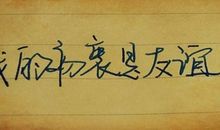 我的初衷是友谊